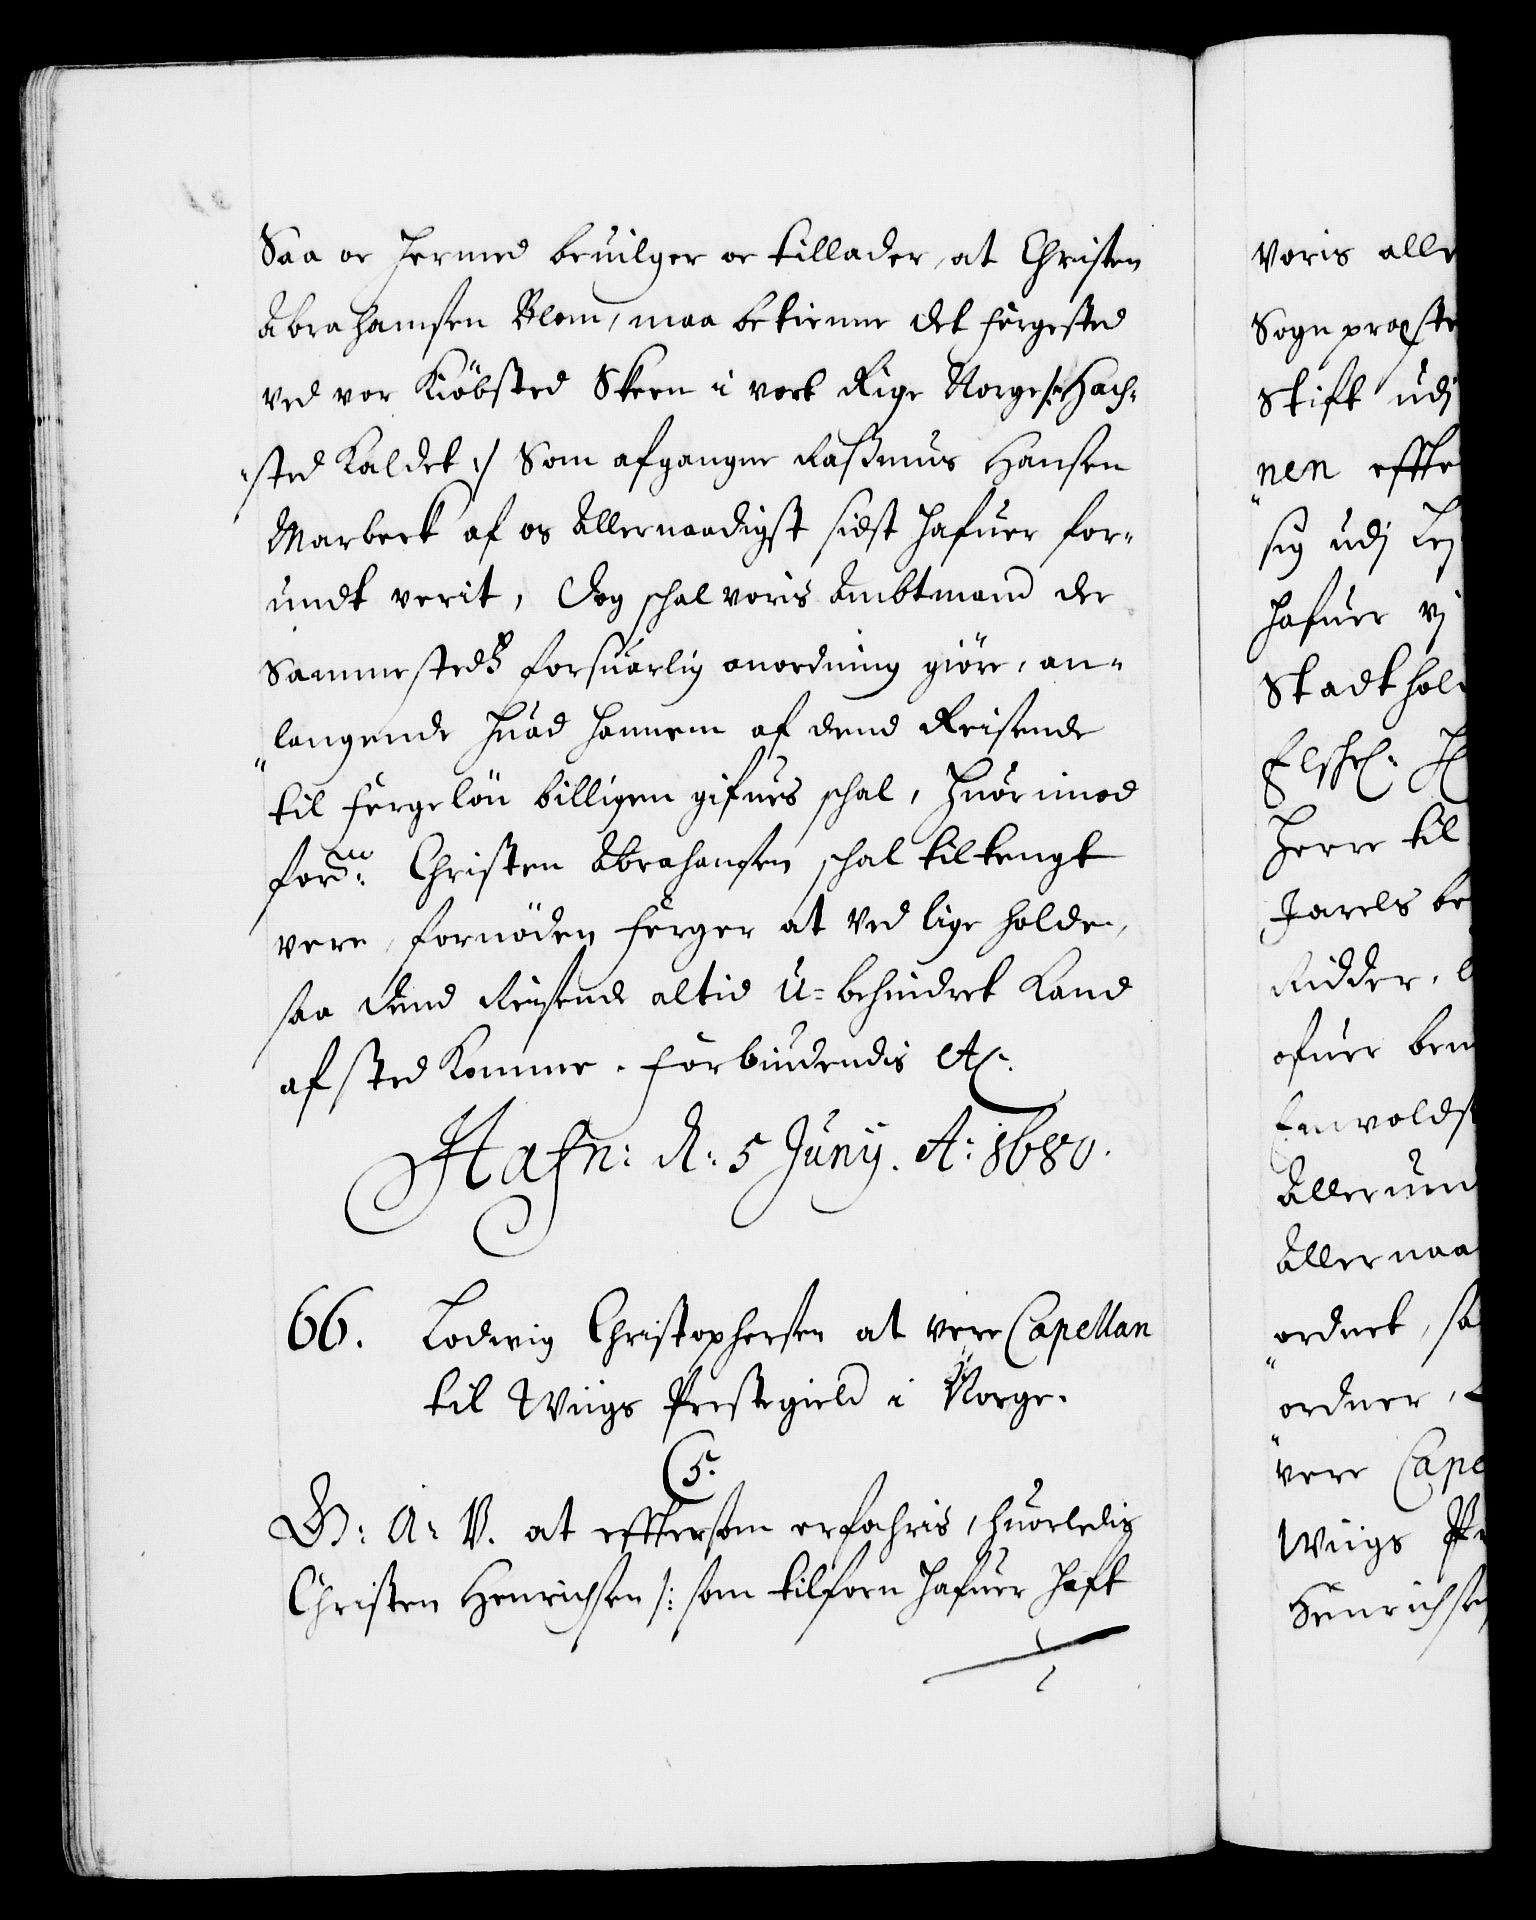 Saa oc hermed beuilger oc tillader, at Christen
Abrahamsen Blom, maa betienne det fergested
ved vor Kiöbsted Skeen i vort Rige Norge /: Hach-
sted kaldet :/ Som afgangne Rasmus Hansen
Marbeck af os Allernaadigst sidst hafuer for-
undt verit, Dog schal voris Ambtmand der
Sammestedz forsuarlig anordning giöre, an-
langende huad hannem af dend Reisende
til fergelön billigen gifues schal, huorimod
fordne: Christen Abrahamsen schal tiltengt
vere, fornöden ferger at ved lige holde,
saa dend Reisende altid u-behindret kand
af sted komme. Forbiudendis etc.
Hafn: d: 5 Junij. A: 1680.
66. Lodwig Christophersen at vere Capellan
til Wiigs Prestegield i Norge.
C5.
G: A: V. at efftersom erfahris, huorledis
Christen Henrichsen /: som tilforn hafuer haft
voris alle
Sogn præste
Stift udj
nen effte
sig udj
hafuer vj
Stadthol
Elschel:
Herre til
Jarels be
Ridder,
ofuer ben
Enwolds
Allerund
Allernaa
ordnet, sa
ordner,
vere Cape
Wiigs Pr
Henrichsen